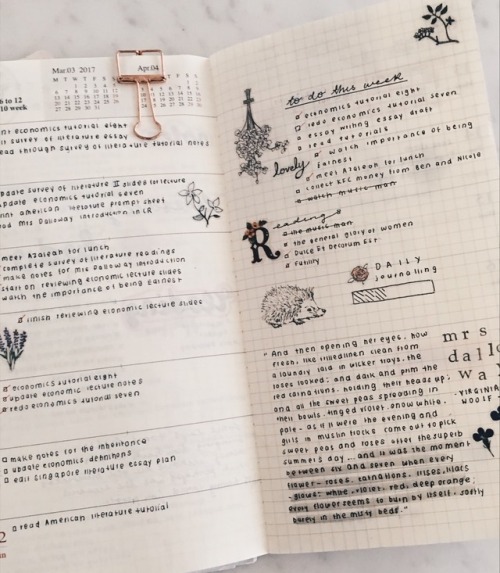 Mar.03 2017
Apr.04
M T W T F S S
6 to 12
10 week
nt economics tutorial eight
t survey of literature essay
ead through survey of literature tutorial notes
pdate survey of literature II slides for lecture
update economics tutorial seven
rint american literature prompt sheet
ead Mrs Dalloway introduction in LR
meet Azaleah for lunch
complete survey of literature readings
make notes for Mrs Dalloway introduction
start on reviewing economic lecture slides
watch the importance of being Earnest
finish reviewing economic lecture slides
economics tutorial eight
update economic lecture notes
redo economics tutorial seven
make notes for the inheritance
update economics definitions
edit singapore literature essay plan
read American literature tutorial
to do this week
economics tutorial eight
redo economics tutorial seven
essay writing essay draft
read tutorials
watch importance of being
Earnest
meet Azaleah for lunch
collect KSC money from Ben and Nicole
watch music man
lovely
Readings
the music man
the general glory of women
Dulce Et Decorum Est
Futility
DAILY
Journalling
"And then opening her eyes, how
fresh, like frilled linen clean from
a laundry laid in wicker trays, the
roses looked; and dark and prim the
red carnations, holding their heads up;
and all the sweet peas spreading in
their bowls, tinged violet, snow white,
pale - as if it were the evening and
girls in muslin frocks came out to pick
sweet peas and roses after the superb
summer's day ... and it was the moment
between six and seven when every
flower - roses, carnations, irises, lilacs
- glows: white, violet, red, deep orange;
every flower seems to burn by itself, softly
purely in the misty beds."
mrs
dallo
way
- VIRGINIA
WOOLF